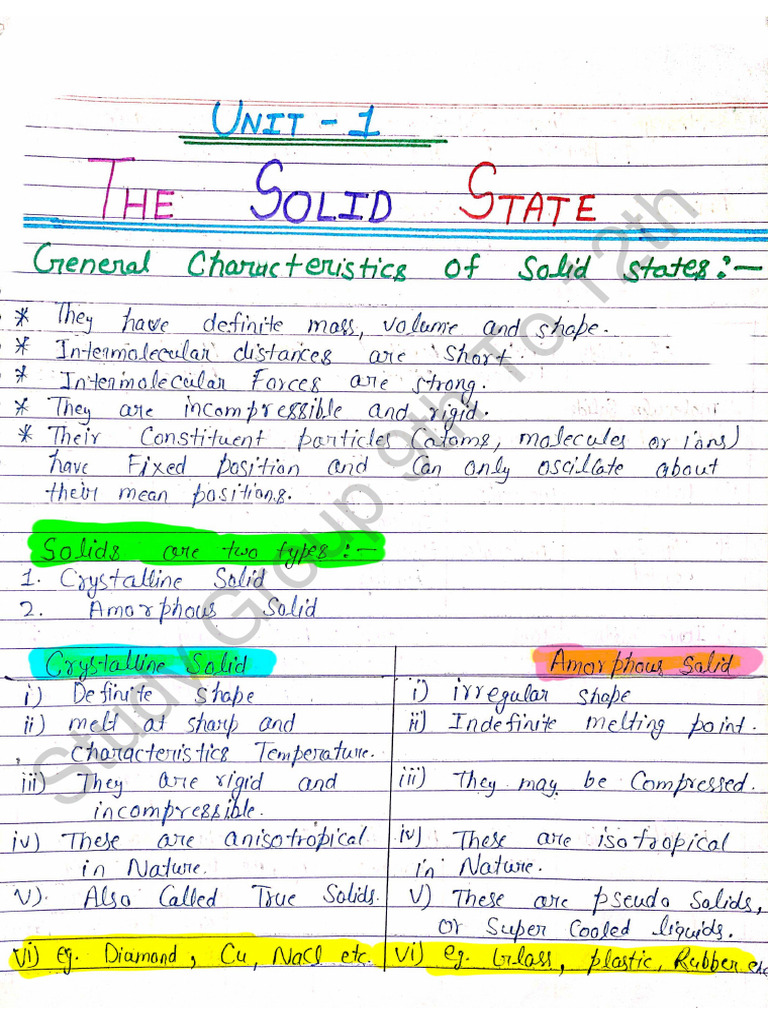 UNIT - 1
THE SOLID STATE
General Characteristics of Solid states:-
* They have definite mass, volume and shape.
* Intermolecular distances are short.
* Intermolecular Forces are strong.
* They are incompressible and rigid.
* Their Constituent particles (atoms, molecules or ions)
have Fixed position and Can only oscillate about
their mean positions.
Solids are two types:-
1. Crystalline Solid
2. Amorphous Solid
Crystalline Solid
i) Definite shape
ii) melt at sharp and
characteristics Temperature.
iii) They are rigid and
incompressible.
iv) These are anisotropical
in Nature.
v). Also Called True Solids.
vi) eg. Diamond, Cu, NaCl etc.
Amorphous Solid
i) irregular shape
ii) Indefinite melting point.
iii) They may be Compressed.
iv) These are isotropical
in Nature.
v) These are pseudo Solids,
or Super Cooled liquids.
vi) eg. Glass, plastic, Rubber etc
Study Group 9th To 12th